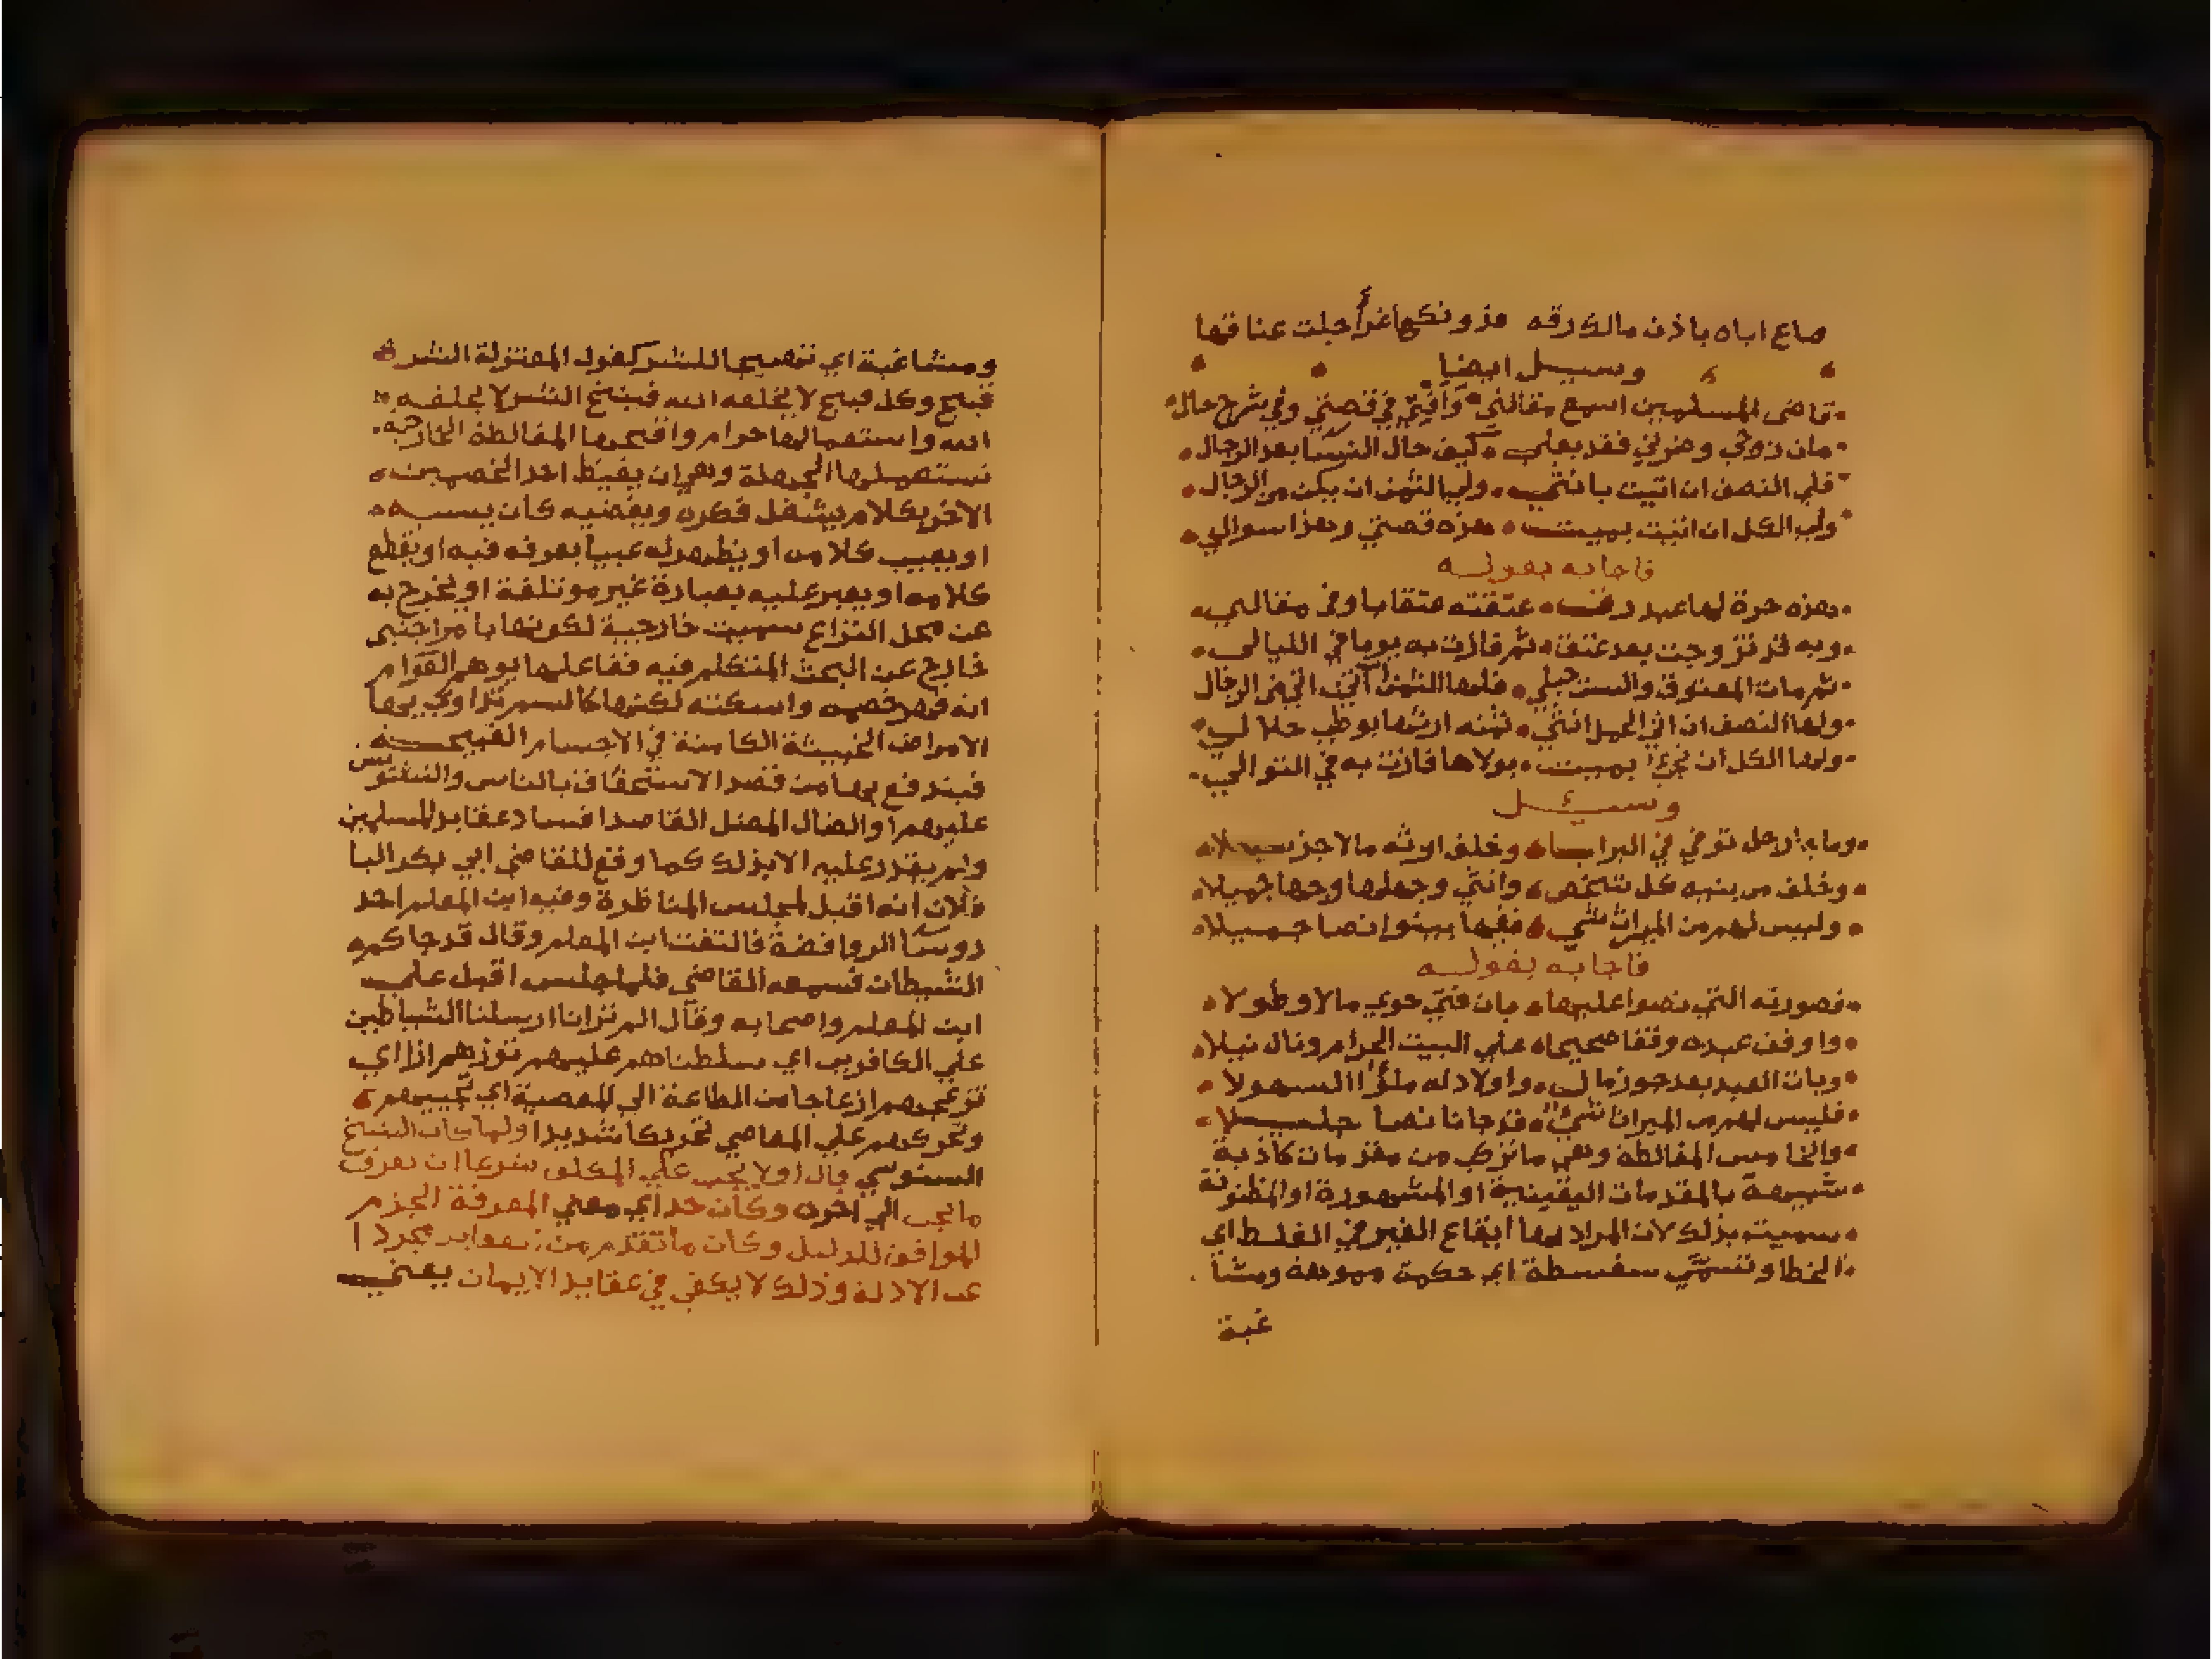 صاع اباه باذن مالك رقه من ونكحها غرا جلت عنا قها
وسيل ايضا
قاضى المسلمين اسمع مقالتي وافتي في قصتي وفي شرح حال
مات زوجي وهزني فقد بعلي كيف حال النسا بعد الرجال
فلي النصف ان اتيت بانثي ولي الثمن ان يكن من الرجال
ولي الكل ان اتيت بميت هذه قصتي وهذا سوالي
فاجابه بقوله
هذه حرة لها عبد رق عتقته عتقا باوفي مقالي
وبه قد تزوجت بعد عتق ثم فازت به يوما في الليالي
ثم مات المعتوق والست حبلي فلها الثمن ان اتي من الرجال
ولها النصف ان اتي الحمل انثي ثمنه ارثها بوطي حلالي
ولها الكل ان تجئ بميت بولاها فازت به في التوالي
وسئل
وما رجل توفي في البرايا وخلف ارثه مالا جزيلا
وخلف من بنيه كل شخص وانثي وجهها وجها جميلا
وليس لهم من الميراث شي فقيها بينوا نصا جميلا
فاجابه بقوله
فصورته التي نصوا عليها بان فتي حوي مالا وطولا
واوقف عبده وقفا صحيحا علي البيت الحرام ونال نيلا
وبات العبد بعد حوز مال واولاد له ملؤا السهولا
فليس لهم من الميراث شئ قد جانا نصا جليلا
والخامس المغالطة وهي ما تركب من مقدمات كاذبة
شبيهة بالمقدمات اليقينية او المشهورة او المظنونة
سميت بذلك لان المراد بها ايقاع الغير في الغلط اي
الخطا وتسمي سفسطة اي حكمة مموهة ومشا
غبة
ومشاغبة اي تهييجا للشر كقول المعتزلة الشر
قبيح وكل قبيح لا يخلقه الله فينتج الشر لا يخلقه
الله واستعمالها حرام واقبحها المغالطة الخارجيه
تستعملها الجهلة وهي ان يغيظ احد الخصمين
الاخر بكلام يشغل فكره ويغضبه كان يسبه
او يعيب كلامه او يظهر له عيبا يعرفه فيه او يقطع
كلامه او يعبر عليه بعبارة غير موتلفة او يخرج به
عن محل النزاع سميت خارجية لكونها بامر اجنبي
خارج عن البحث المتكلم فيه ففاعلها يوهم العوام
انه قهر خصمه واسكته لكنها كالسم تداوي بها
الامراض الخبيثة الكامنة في الاجسام القبيحه
فيندفع بها من قصد الاستخفاف بالناس والتشويش
عليهم او الضال المضل القاصد افساد عقايد المسلمين
ولم يقدر عليه الا بذلك كما وقع للقاضي ابي بكر البا
قلان انه اقبل لمجلس المناظرة وفيه ابن المعلم احد
روسا الروافضة فالتفت ابن المعلم وقال قد جاكم
الشيطان فسمعه القاضي فلما جلس اقبل علي
ابن المعلم واصحابه وقال الم تر انا ارسلنا الشياطين
علي الكافرين اي سلطناهم عليهم توزهم ازا اي
تزعجهم ازعاجا من الطاعة الي المعصية اي تهيجهم
وتحركهم علي المعاصي تحريكا شديدا ولما كان الشيخ
السنوسي قال اولا يجب علي المكلف شرعا ان يعرف
ما يجب الي اخره وكان حد اي معني المعرفة الجزم
الموافق للدليل وكان ما تقدم من عقايد مجردا
عن الادلة وذلك لا يكفي في عقايد الايمان يعني